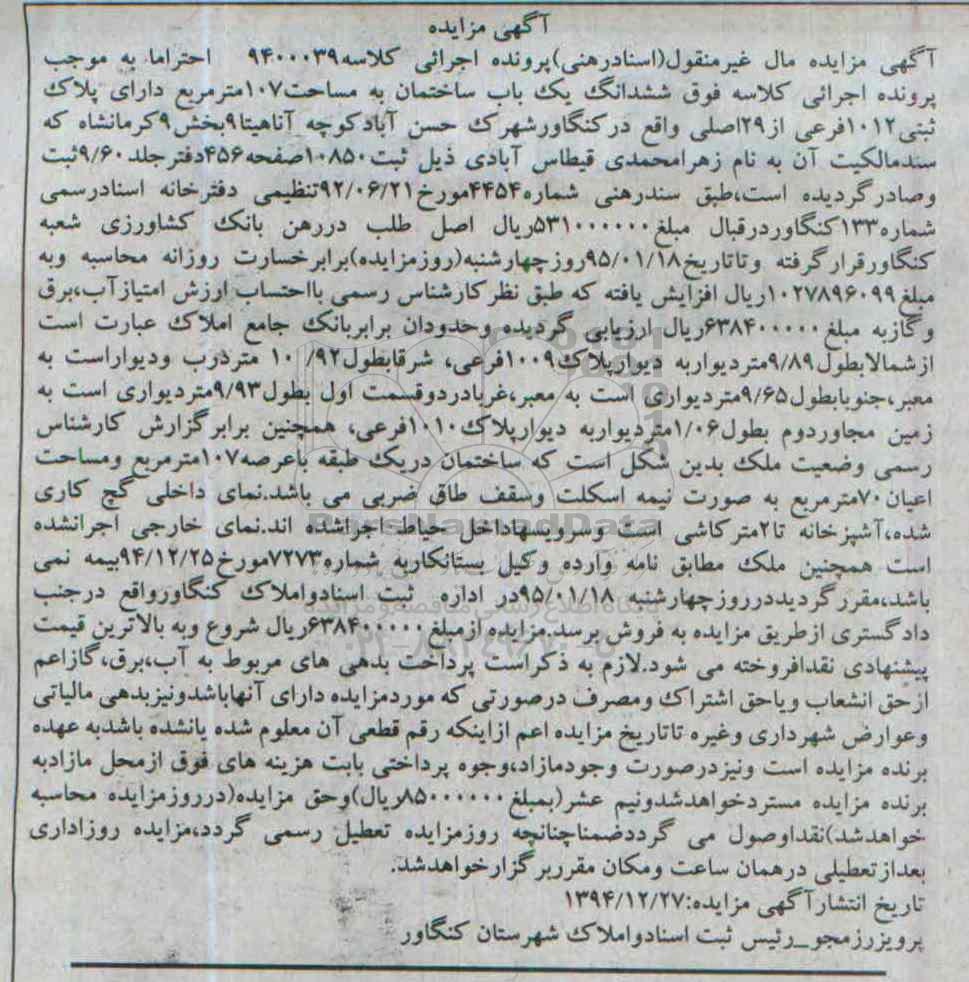 آگهی مزایده
آگهی مزایده مال غیرمنقول(اسنادرهنی)پرونده اجرائی کلاسه۹۴۰۰۰۳۹ احتراما به موجب
پرونده اجرائی کلاسه فوق ششدانگ یک باب ساختمان به مساحت۱۰۷مترمربع دارای پلاک
ثبتی۱۰۱۲فرعی از۲۹اصلی واقع درکنگاورشهرک حسن آبادکوچه آناهیتا۹بخش۹کرمانشاه که
سندمالکیت آن به نام زهرامحمدی قیطاس آبادی ذیل ثبت۱۰۸۵۰صفحه۴۵۶دفترجلد۹/۶۰ثبت
وصادرگردیده است،طبق سندرهنی شماره۴۴۵۴مورخ۹۲/۰۶/۲۱تنظیمی دفترخانه اسنادرسمی
شماره۱۳۳کنگاوردرقبال مبلغ۵۳۱۰۰۰۰۰۰ریال اصل طلب دررهن بانک کشاورزی شعبه
کنگاورقرارگرفته وتاتاریخ۹۵/۰۱/۱۸روزچهارشنبه(روزمزایده)برابرخسارت روزانه محاسبه وبه
مبلغ۱۰۲۷۸۹۶۰۹۹ریال افزایش یافته که طبق نظرکارشناس رسمی بااحتساب ارزش امتیازآب،برق
وگازبه مبلغ۶۳۸۴۰۰۰۰۰ریال ارزیابی گردیده وحدودان برابربانک جامع املاک عبارت است
ازشمالابطول۹/۸۹متردیواربه دیوارپلاک۱۰۰۹فرعی، شرقابطول۱۰/۹۲ متردرب ودیواراست به
معبر،جنوبابطول۹/۶۵متردیواری است به معبر،غربادردوقسمت اول بطول۹/۹۳متردیواری است به
زمین مجاوردوم بطول۱/۰۶متردیواربه دیوارپلاک۱۰۱۰فرعی، همچنین برابرگزارش کارشناس
رسمی وضعیت ملک بدین شکل است که ساختمان دریک طبقه باعرصه۱۰۷مترمربع ومساحت
اعیان۷۰مترمربع به صورت نیمه اسکلت وسقف طاق ضربی می باشد.نمای داخلی گچ کاری
شده،آشپزخانه تا۲مترکاشی است وسرویسهاداخل حیاط اجراشده اند.نمای خارجی اجرانشده
است همچنین ملک مطابق نامه وارده وکیل بستانکاربه شماره۷۲۷۳مورخ۹۴/۱۲/۲۵بیمه نمی
باشد،مقررگردیددرروزچهارشنبه ۹۵/۰۱/۱۸در اداره ثبت اسنادواملاک کنگاورواقع درجنب
دادگستری ازطریق مزایده به فروش برسد.مزایده ازمبلغ۶۳۸۴۰۰۰۰۰ریال شروع وبه بالاترین قیمت
پیشنهادی نقدافروخته می شود.لازم به ذکراست پرداخت بدهی های مربوط به آب،برق،گازاعم
ازحق انشعاب ویاحق اشتراک ومصرف درصورتی که موردمزایده دارای آنهاباشدونیزبدهی مالیاتی
وعوارض شهرداری وغیره تاتاریخ مزایده اعم ازاینکه رقم قطعی آن معلوم شده یانشده باشدبه عهده
برنده مزایده است ونیزدرصورت وجودمازاد،وجوه پرداختی بابت هزینه های فوق ازمحل مازادبه
برنده مزایده مستردخواهدشدونیم عشر(بمبلغ۸۵۰۰۰۰۰۰ریال)وحق مزایده(درروزمزایده محاسبه
خواهدشد)نقداوصول می گرددضمناچنانچه روزمزایده تعطیل رسمی گردد،مزایده روزاداری
بعدازتعطیلی درهمان ساعت ومکان مقرربرگزارخواهدشد.
تاریخ انتشارآگهی مزایده:۱۳۹۴/۱۲/۲۷
پرویزرزمجو_رئیس ثبت اسنادواملاک شهرستان کنگاور